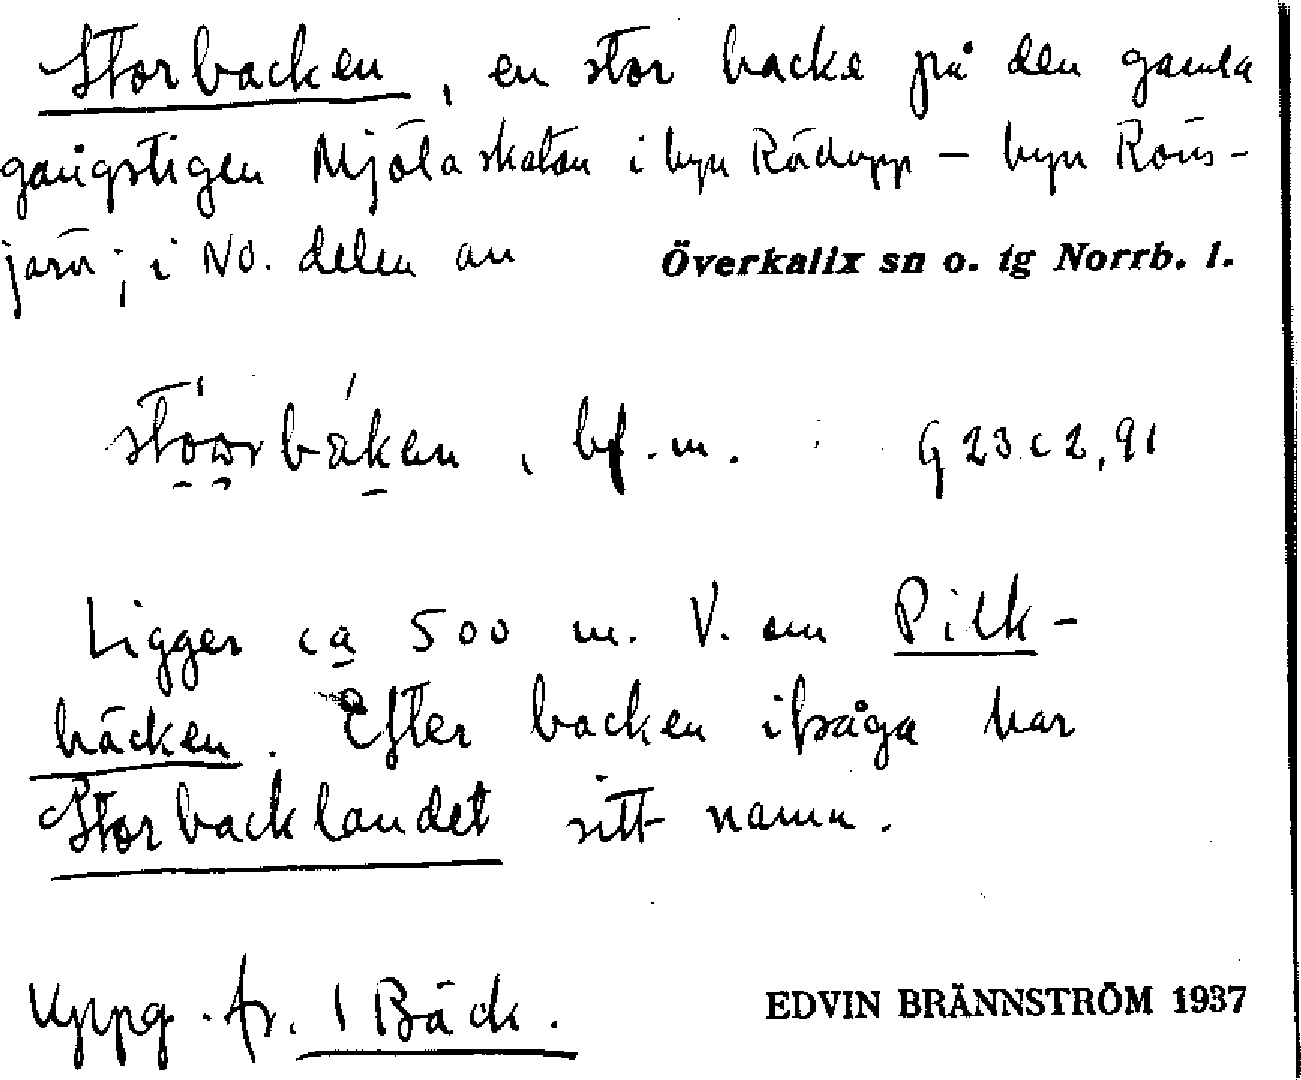 Storbacken, en stor backe på den gamla
gångstigen Mjölaskatan i byn Rödupp – byn Röns-
järv; i NO. delen av Överkalix sn o. tg Norrb. l.
bf. m. G 23 c 2, 91
Ligger ca 500 m. V. om Pilk-
bäcken. Efter backen ifråga har
Storbacklandet sitt namn.
Uppg. fr. I Bäck. EDVIN BRÄNNSTRÖM 1937